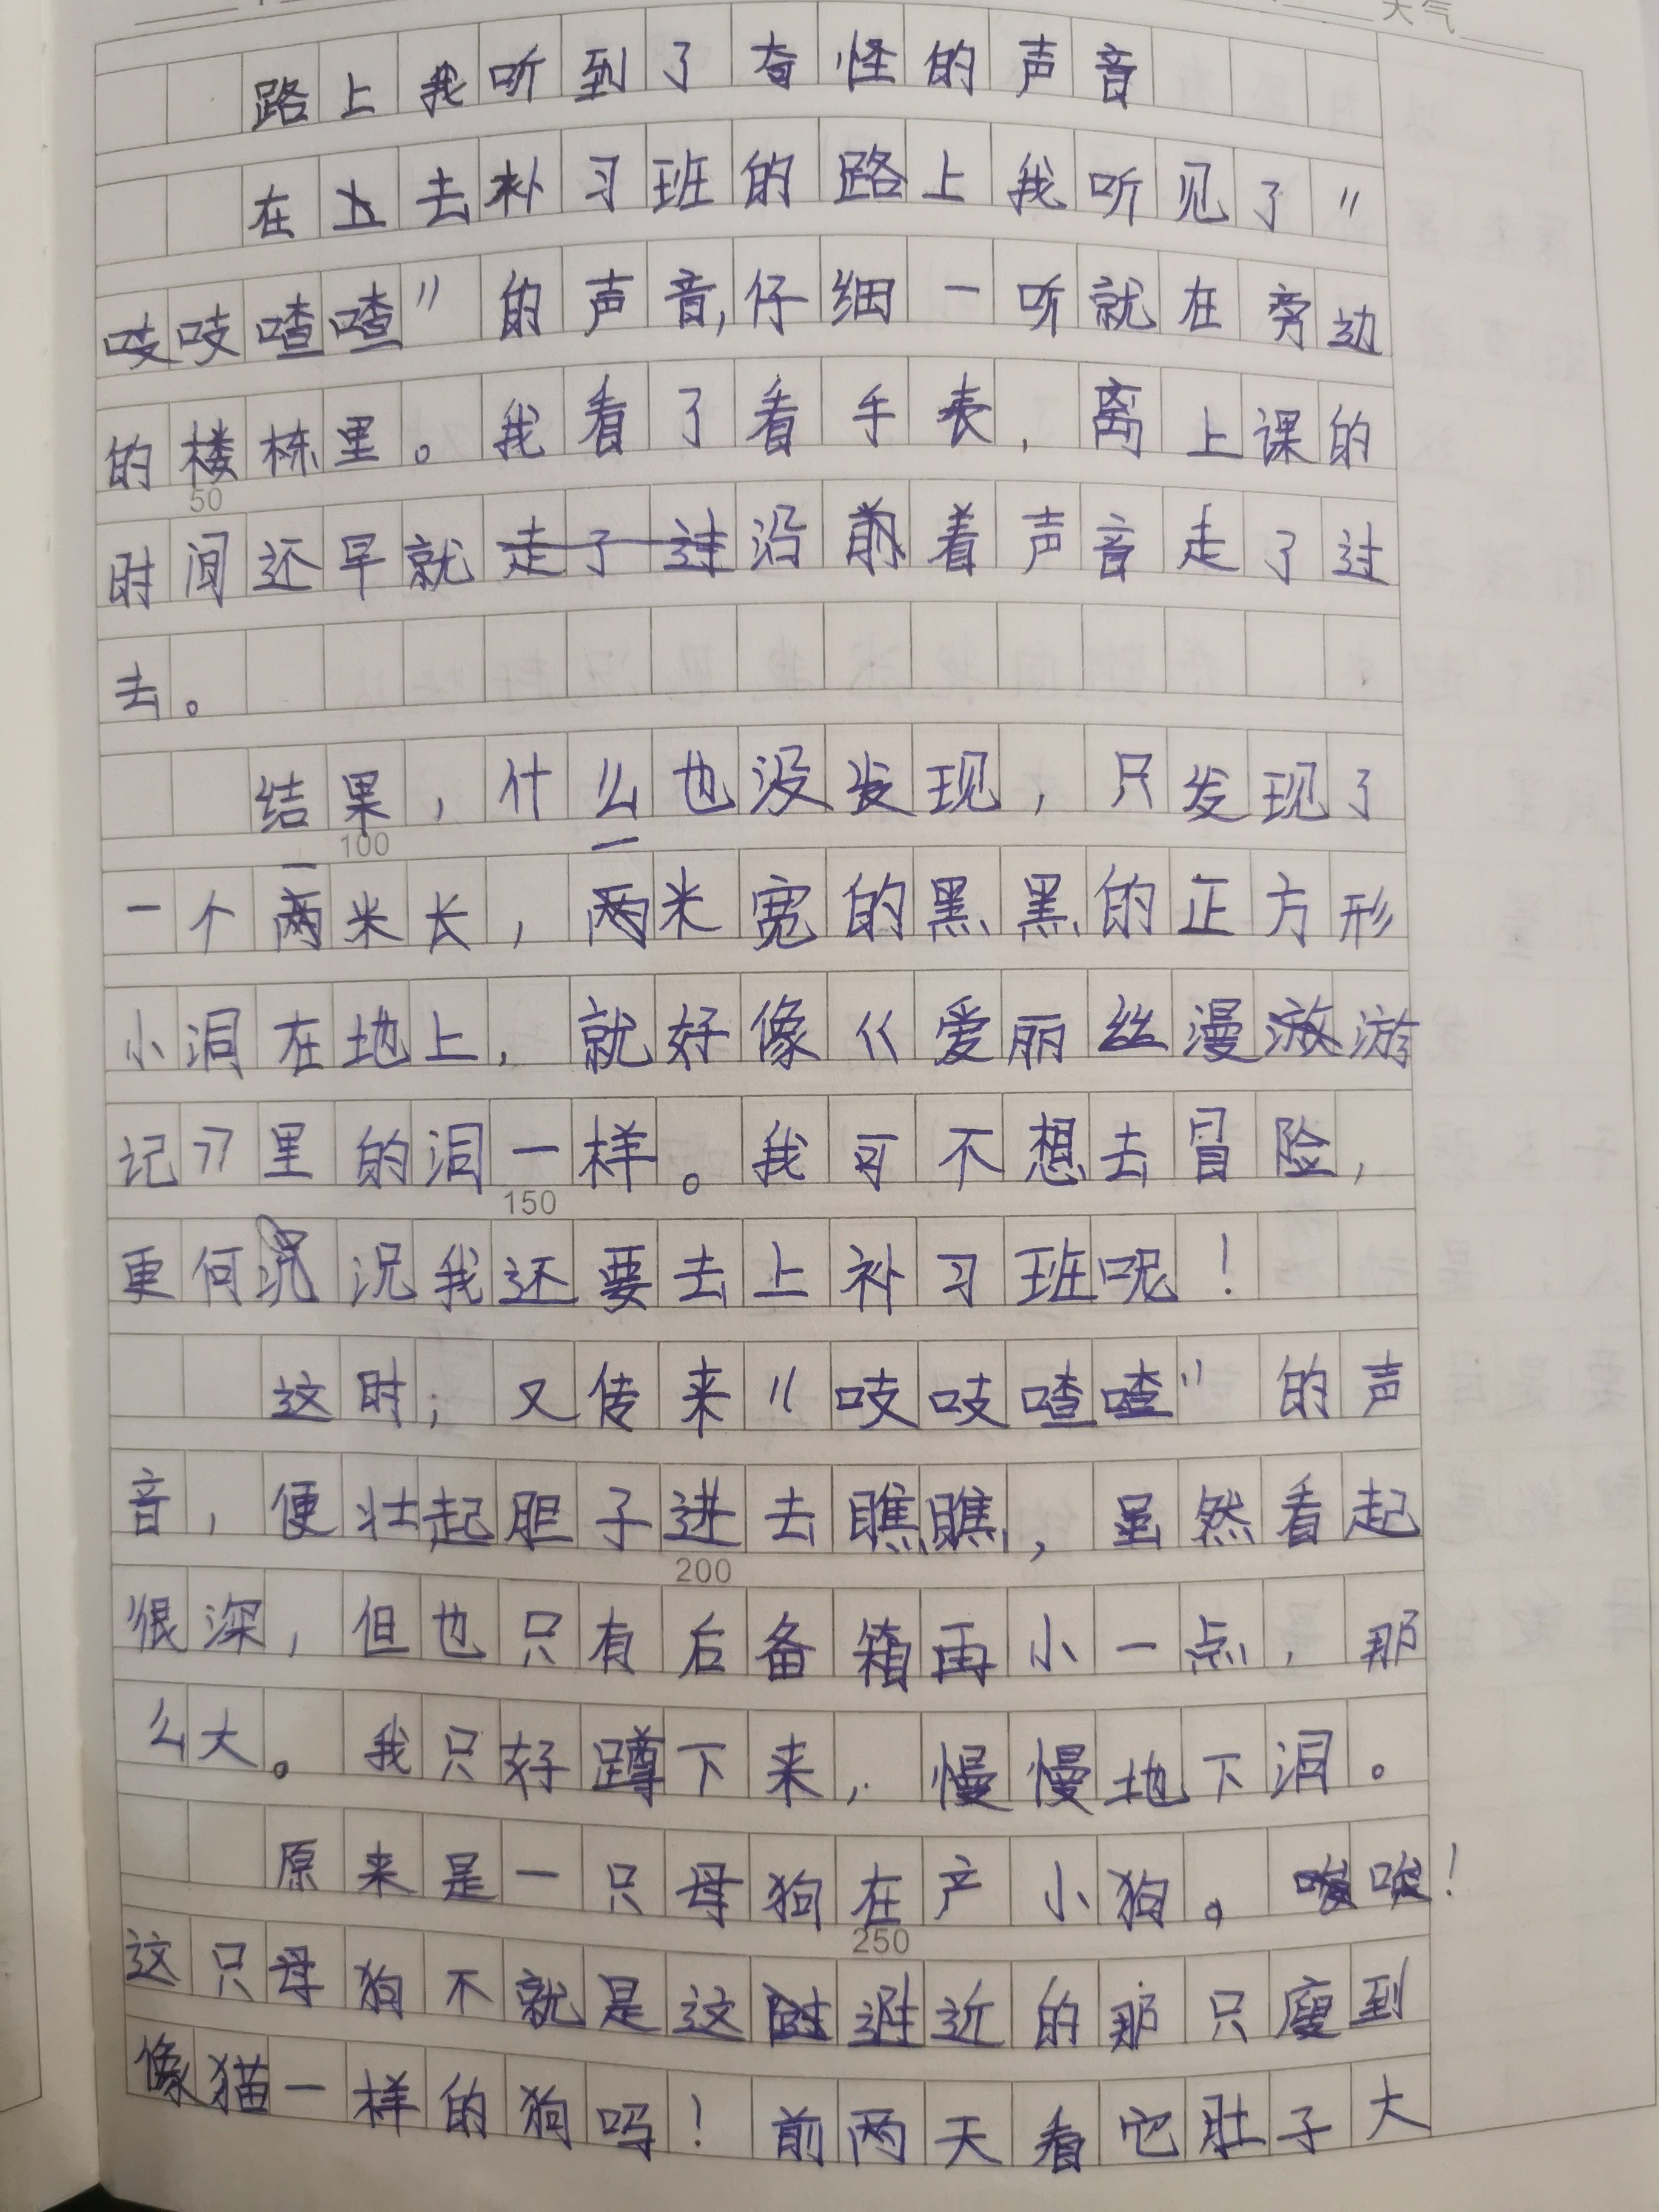 天气
路上我听到了奇怪的声音
在去补习班的路上我听见了“
吱吱喳喳”的声音,仔细一听就在旁边
的楼栋里。我看了看手表,离上课的
50
时间还早就沿着声音走了过
去。
结果,什么也没发现,只发现了
100
一个一米长,一米宽的黑黑的正方形
小洞在地上,就好像《爱丽丝漫游
记》里的洞一样。我可不想去冒险,
150
更何况我还要去上补习班呢!
这时,又传来“吱吱喳喳”的声
音,便壮起胆子进去瞧瞧,虽然看起
200
很深,但也只有后备箱再小一点,那
么大。我只好蹲下来,慢慢地下洞。
原来是一只母狗在产小狗。唉!
250
这只母狗不就是这近的那只瘦到
像猫一样的狗吗!前两天看它肚子大